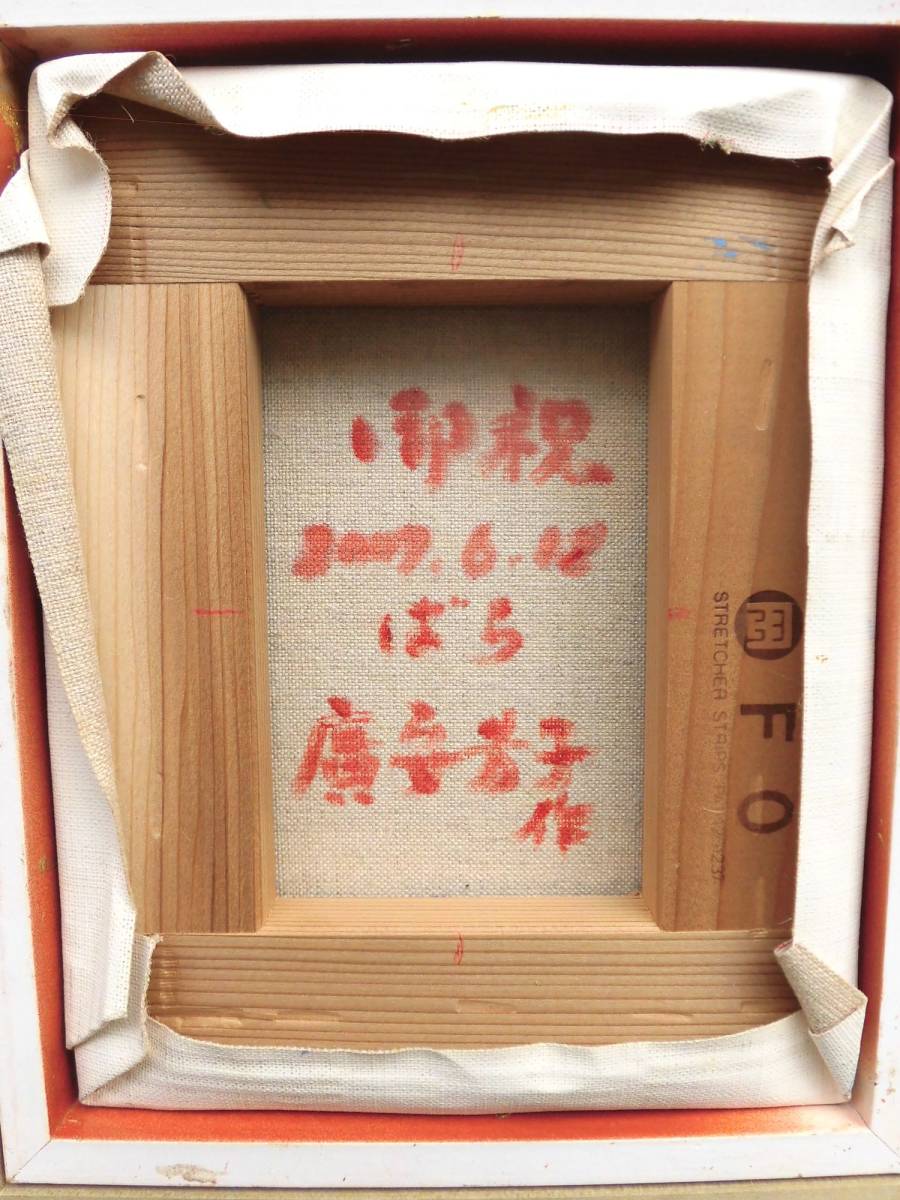 御祝
2007.6.12
ばら
廣安芳子
作
STRETCHER STRIPS
F0